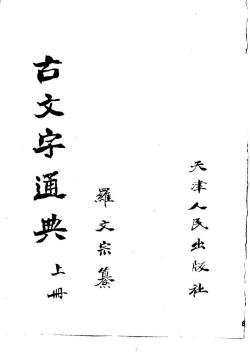 古文字通典
上册
羅文宗纂
天津人民出版社